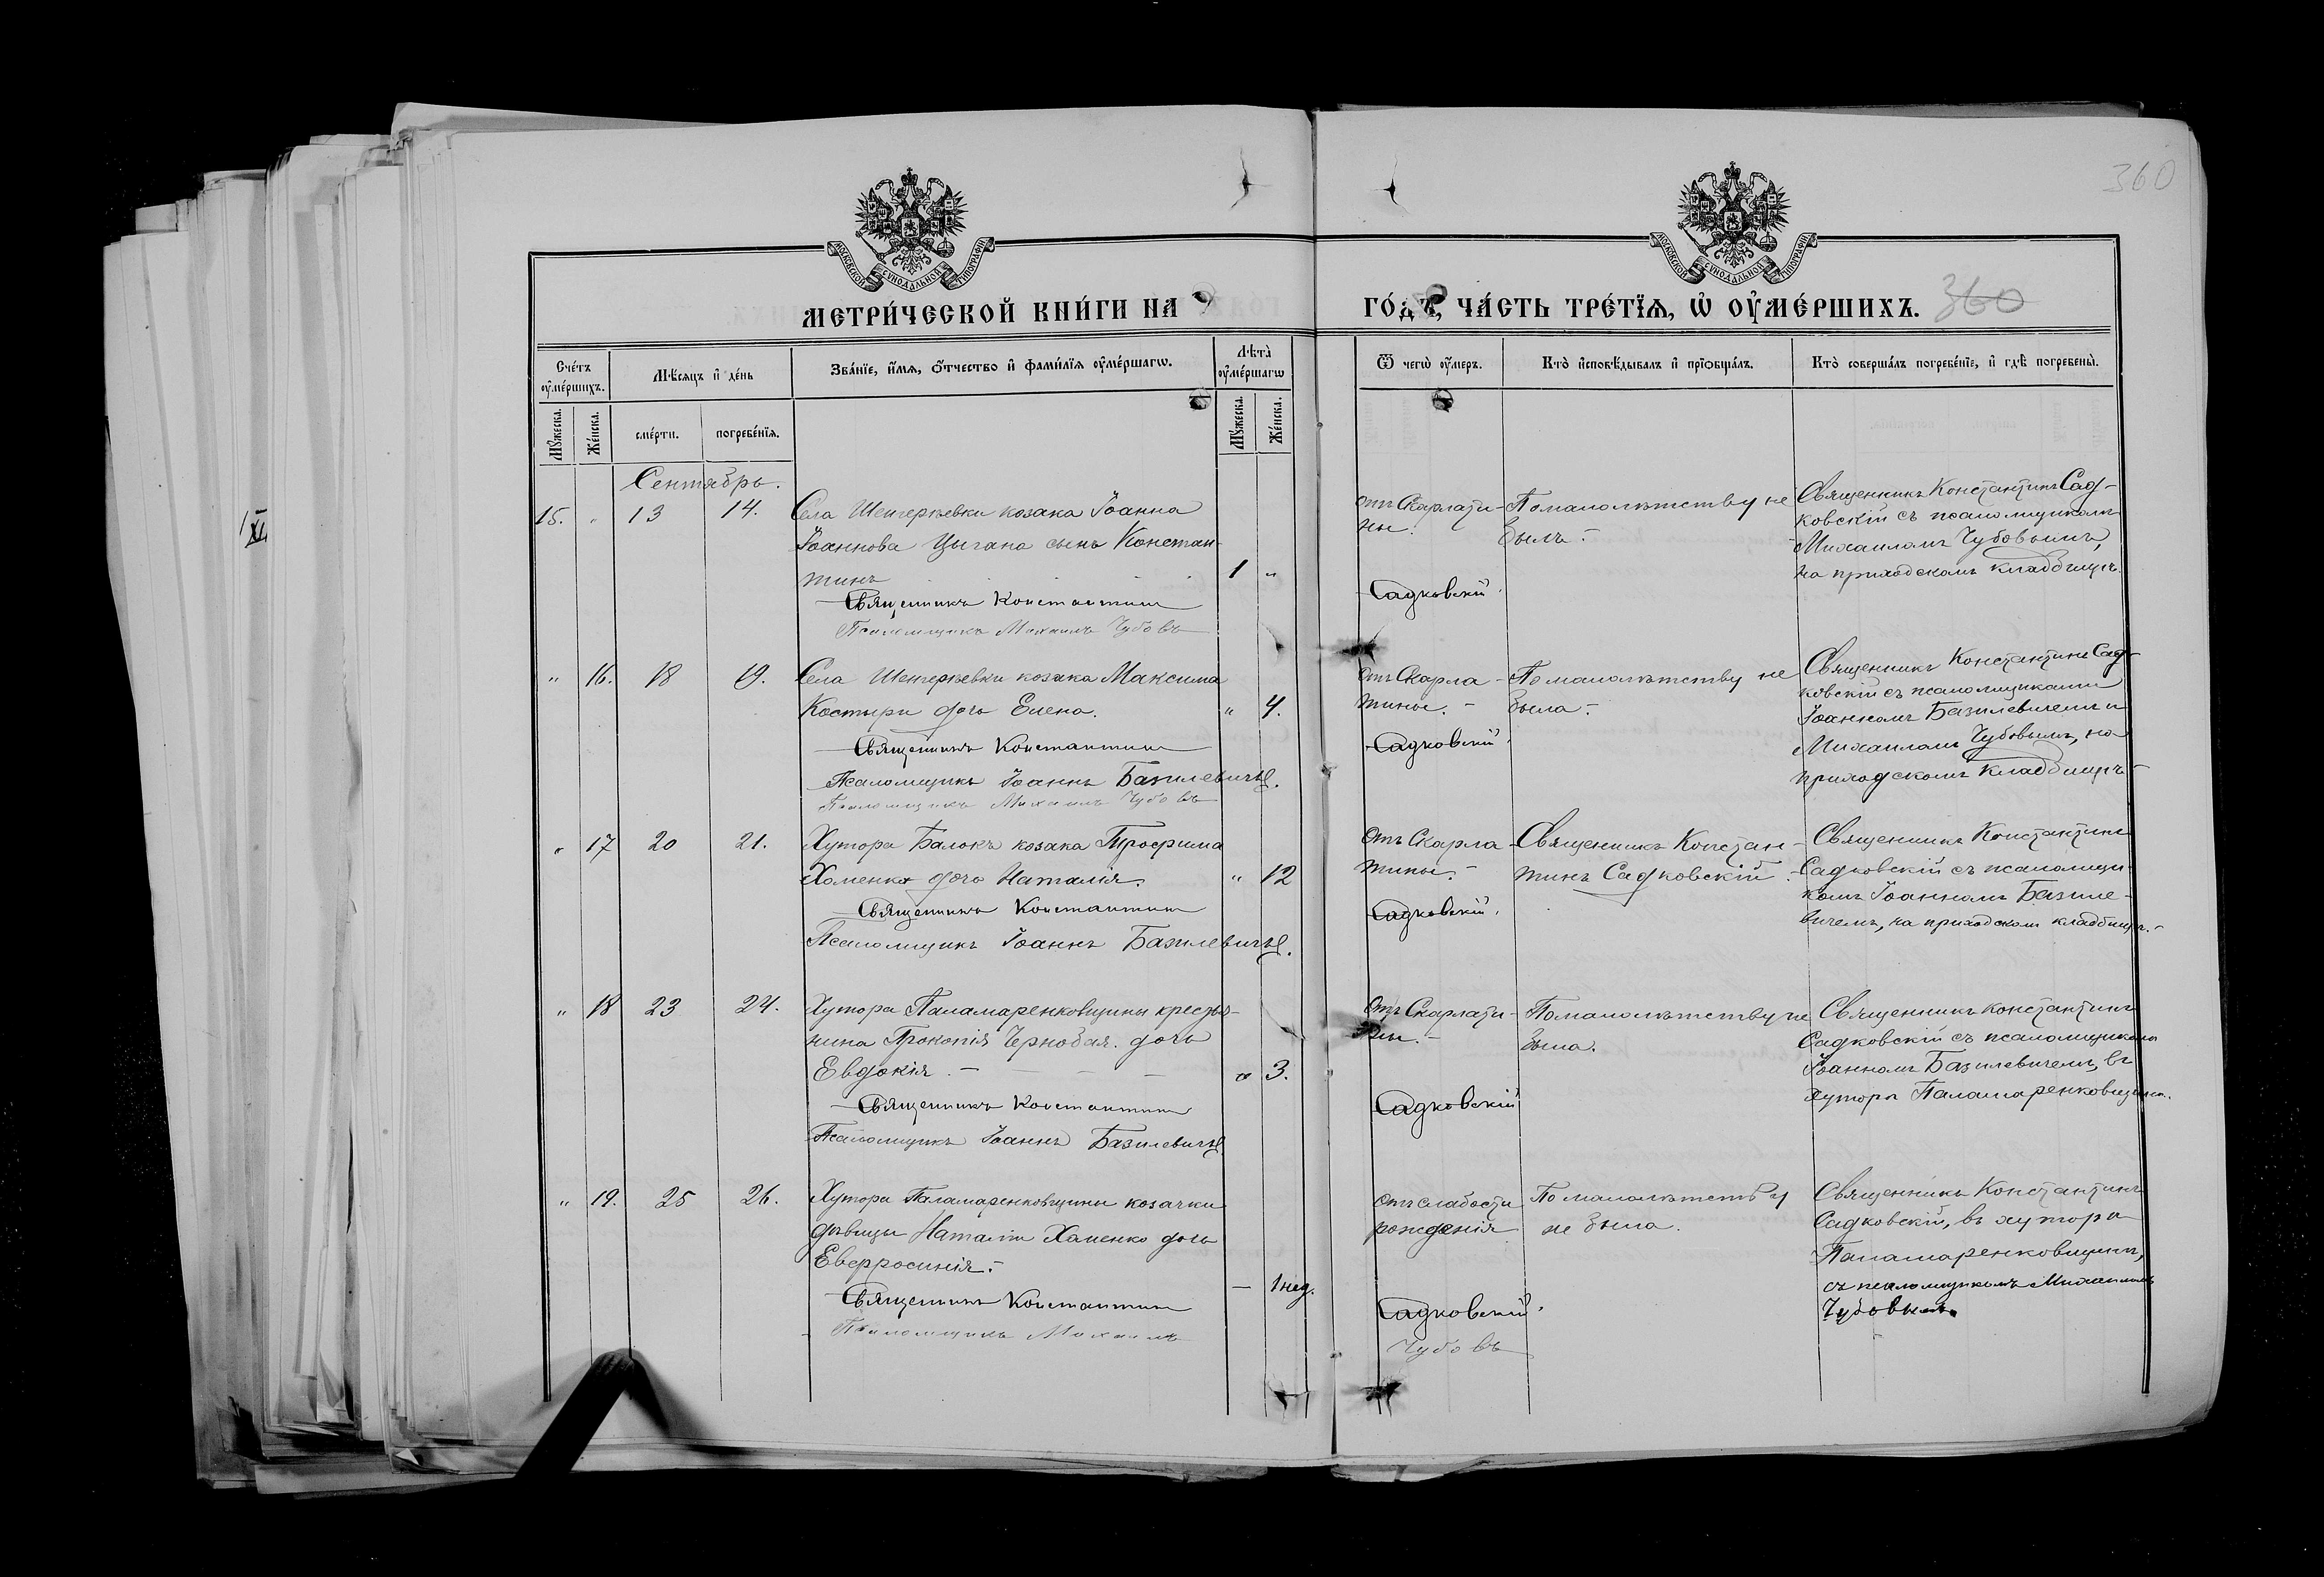 360
МОСКОВСКОЙ СѴНОДАЛЬНОЙ ТИПОГРАФІИ
МОСКОВСКОЙ СѴНОДАЛЬНОЙ ТИПОГРАФІИ
МЕТРИ́ЧЕСКОЙ КНИ́ГИ НА
ГО́ДЪ, ЧА́СТЬ ТРЕ́ТЇѦ, Ѽ ОУ҆МЕ́РШИХЪ. 360
Сче́тъ оу҆ме́ршихъ.
Мѣ́сяцъ и҆ де́нь
Зва́нїе, и҆́мѧ, ѻ҆́тчество и҆ фами́лїѧ оу҆ме́ршагѡ.
Лѣ́та̀ оу҆ме́ршагѡ
Ѿ чегѡ̀ оу҆́меръ.
Кто̀ и҆сповѣ́дывалъ и҆ прїѻбща́лъ.
Кто̀ соверша́лъ погребе́нїе, и҆ гдѣ̀ погребены̀.
Мꙋ́жеска.
Же́нска.
сме́рти.
погребе́нїѧ.
Мꙋ́жеска.
Же́нска.
XI
Сентябрь.
15. " 13 14. Села Шенгерѣевки козака Іоанна
Іоаннова Цыгана сынъ Констан-
тинъ 1 "
Священникъ Константинъ Садковскій.
Псаломщикъ Михаилъ Чубовъ
отъ Скарлати-
ны.
По малолѣтству не
былъ.
Священникъ Константинъ Сад-
ковскій съ псаломщикомъ
Михаиломъ Чубовымъ,
на приходскомъ кладбищѣ.
" 16. 18 19. Села Шенгерѣевки козака Максима
Костыри дочь Елена. " 4.
Священникъ Константинъ Садковскій.
Псаломщикъ Іоаннъ Базилевичъ.
Псаломщикъ Михаилъ Чубовъ
отъ Скарла-
тины.-
По малолѣтству не
была.-
Священникъ Константинъ Сад-
ковскій съ псаломщиками
Іоанномъ Базилевичемъ и
Михаиломъ Чубовымъ, на
приходскомъ кладбищѣ-
" 17 20 21. Хутора Балокъ козака Трофима
Хоменка дочь Наталія. " 12
Священникъ Константинъ Садковскій.
Псаломщикъ Іоаннъ Базилевичъ.
отъ Скарла-
тины.-
Священникъ Констан-
тинъ Садковскій.
Священникъ Константинъ
Садковскій съ псаломщи-
комъ Іоанномъ Базиле-
вичемъ, на приходскомъ кладбищѣ.-
" 18 23 24. Хутора Паламаренковщины крестья-
нина Прокопія Чернобая дочь
Евдокія.- " 3.
Священникъ Константинъ Садковскій
Псаломщикъ Іоаннъ Базилевичъ
отъ Скарлати-
ны.-
По малолѣтству не
была.
Священникъ Константинъ
Садковскій съ псаломщикомъ
Іоанномъ Базилевичемъ, въ
хуторѣ Паламаренковщинѣ.
" 19. 25 26. Хутора Паламаренковщины козачки
дѣвицы Наталіи Хоменко дочь
Евфросинія.-
— 1 нед.
Священникъ Константинъ Садковскій.
Псаломщикъ Михаилъ Чубовъ
отъ слабости
рожденія
По малолѣтству
не была.
Священникъ Константинъ
Садковскій, въ хуторѣ
Паламаренковщинѣ,
съ псаломщикомъ Михаиломъ
Чубовымъ.